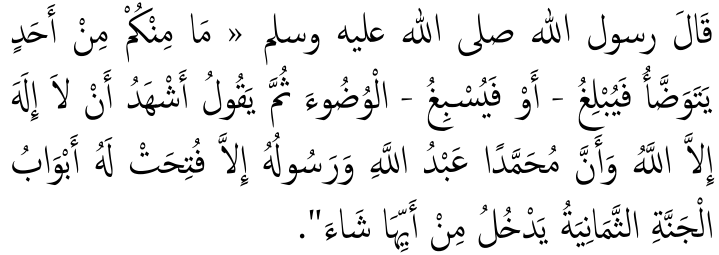 قَالَ رسول الله صلى الله عليه وسلم « مَا مِنْكُمْ مِنْ أَحَدٍ
يَتَوَضَّأُ فَيُبْلِغُ - أَوْ فَيُسْبِغُ - الْوُضُوءَ ثُمَّ يَقُولُ أَشْهَدُ أَنْ لاَ إِلَهَ
إِلاَّ اللَّهُ وَأَنَّ مُحَمَّدًا عَبْدُ اللَّهِ وَرَسُولُهُ إِلاَّ فُتِحَتْ لَهُ أَبْوَابُ
الْجَنَّةِ الثَّمَانِيَةُ يَدْخُلُ مِنْ أَيِّهَا شَاءَ".